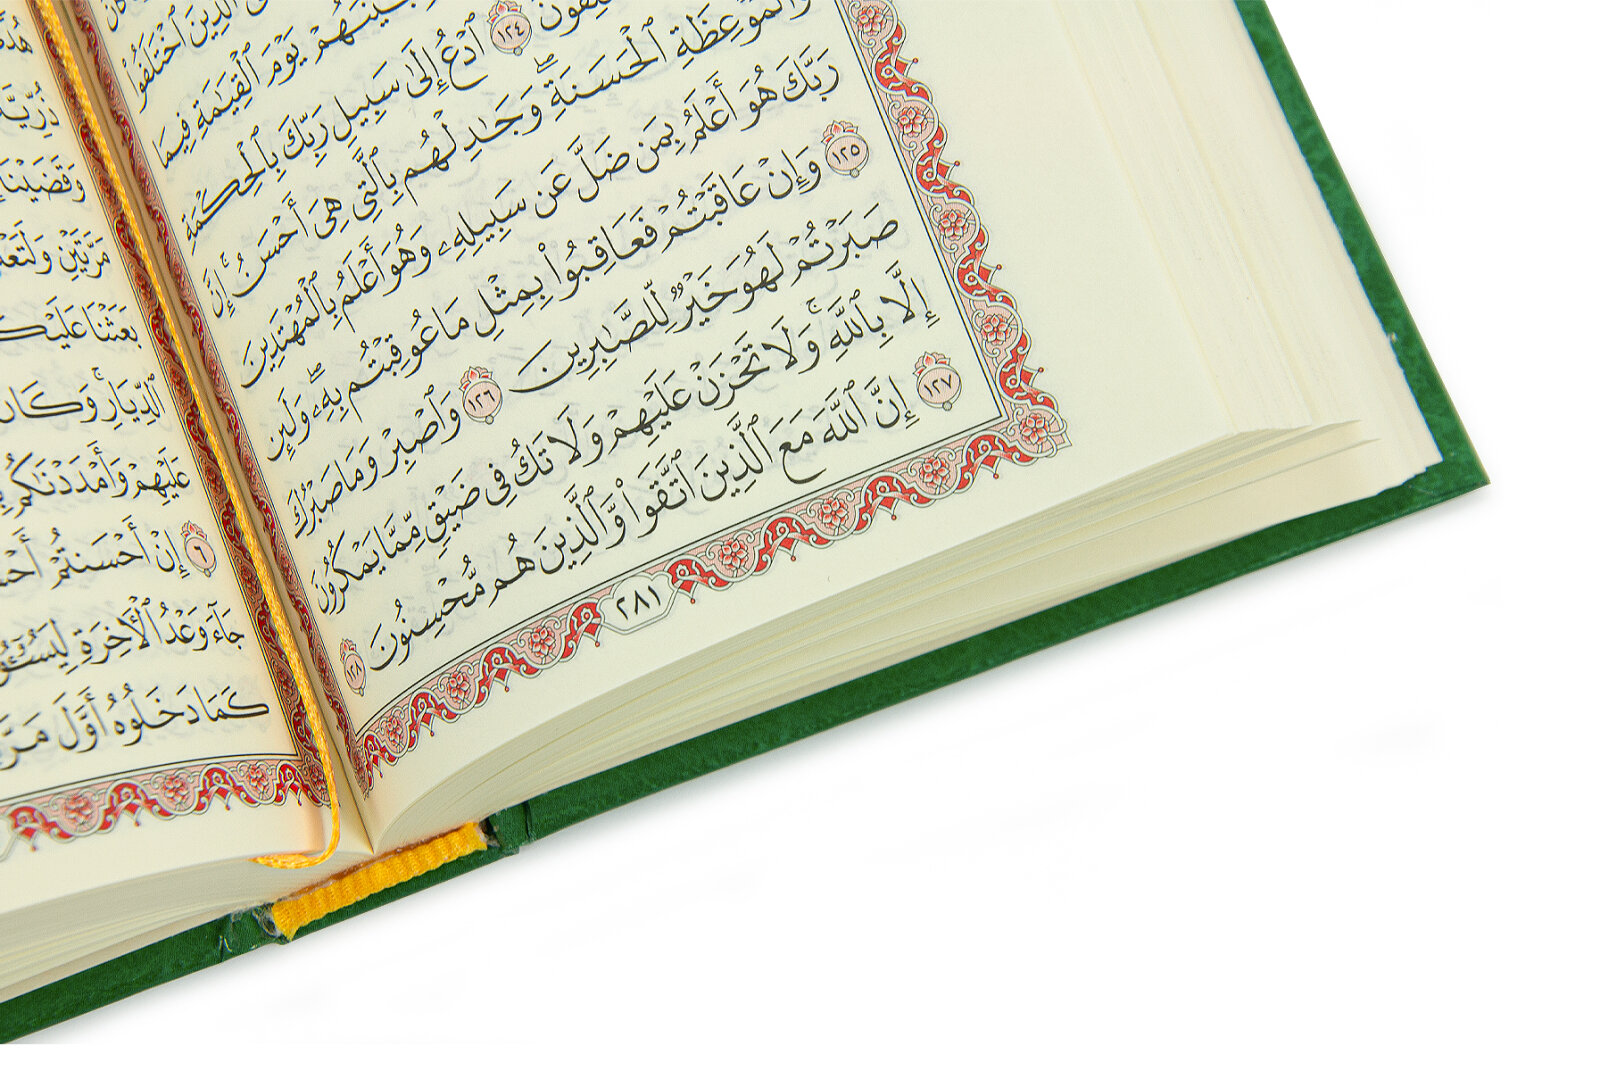 ٱلَّذِينَ ٱخْتَلَفُوا۟
يَوْمَ ٱلْقِيَـٰمَةِ فِيمَا
١٢٤ ٱدْعُ إِلَىٰ سَبِيلِ رَبِّكَ بِٱلْحِكْمَةِ
وَٱلْمَوْعِظَةِ ٱلْحَسَنَةِ ۖ وَجَـٰدِلْهُم بِٱلَّتِى هِىَ أَحْسَنُ ۚ إِنَّ
رَبَّكَ هُوَ أَعْلَمُ بِمَن ضَلَّ عَن سَبِيلِهِۦ وَهُوَ أَعْلَمُ بِٱلْمُهْتَدِينَ
١٢٥ وَإِنْ عَاقَبْتُمْ فَعَاقِبُوا۟ بِمِثْلِ مَا عُوقِبْتُم بِهِۦ ۖ وَلَئِن
صَبَرْتُمْ لَهُوَ خَيْرٌ لِّلصَّـٰبِرِينَ ١٢٦ وَٱصْبِرْ وَمَا صَبْرُكَ
إِلَّا بِٱللَّهِ ۚ وَلَا تَحْزَنْ عَلَيْهِمْ وَلَا تَكُ فِى ضَيْقٍ مِّمَّا يَمْكُرُونَ
١٢٧ إِنَّ ٱللَّهَ مَعَ ٱلَّذِينَ ٱتَّقَوا۟ وَّٱلَّذِينَ هُم مُّحْسِنُونَ ١٢٨
٢٨١
ذُرِّيَّةَ
وَقَضَيْنَآ
مَرَّتَيْنِ
بَعَثْنَا
ٱلدِّيَارِ ۚ وَكَانَ
عَلَيْهِمْ وَأَمْدَدْنَـٰكُم
٦ إِنْ أَحْسَنتُمْ
جَآءَ وَعْدُ ٱلْـَٔاخِرَةِ
كَمَا دَخَلُوهُ أَوَّلَ